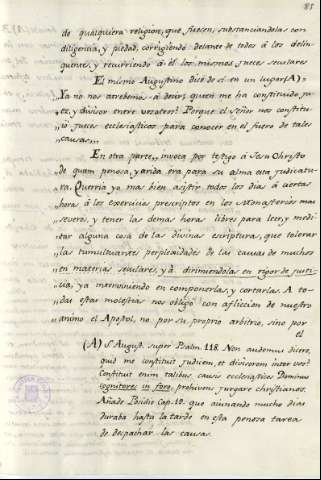 85
de qualquiera religion, que fuesen, substanciandolas con
diligencia, y piedad, corrigiendo delante de todos á los delin-
quentes, y recurriendo á él los mismos Jueces seculares
El mismo Augustino dice de sí en un lugar (A)
"Yo no nos atrebemos á decir; quien me ha constituido ju-
"ez, y divisor entre vosotros? Porque el Señor nos constitu-
"ió jueces eclesiasticos para conocer en el fuero de tales
"causas
En otra parte, invoca por testigo á Jesu Christo
"de quam penosa, y arida era para su alma esta judicatu-
"ra. Querria yo mas bien asistir todos los dias á ciertas
"horas á los exercicios prescriptos en los Monasterios mas
"severos, y tener las demas horas libres para leer, y medi-
"tar alguna cosa de las divinas escripturas, que tolerar
"las tumultuantes perplexidades de las causas de muchos
"en materias seculares, yá dirimiendolas en rigor de justi-
"cia, ya interviniendo en componerlas, y cortarlas. A to-
"das estas molestias nos obligó con afliccion de nuestro
"animo el Apostol, no por su proprio arbitrio, sino por
el
(A) S. August. super Psalm. 118. Non audemus dicere,
quid me constituit judicem, et divisorem inter vos?
Constituit enim talibus causis ecclesiasticos Dominus
cognitores in foro, prohivens jurgare christianos.
Añade Posidio Cap. 19. que aiunando mucho dias
duraba hasta la tarde en esta penosa tarea
de despachar las causas